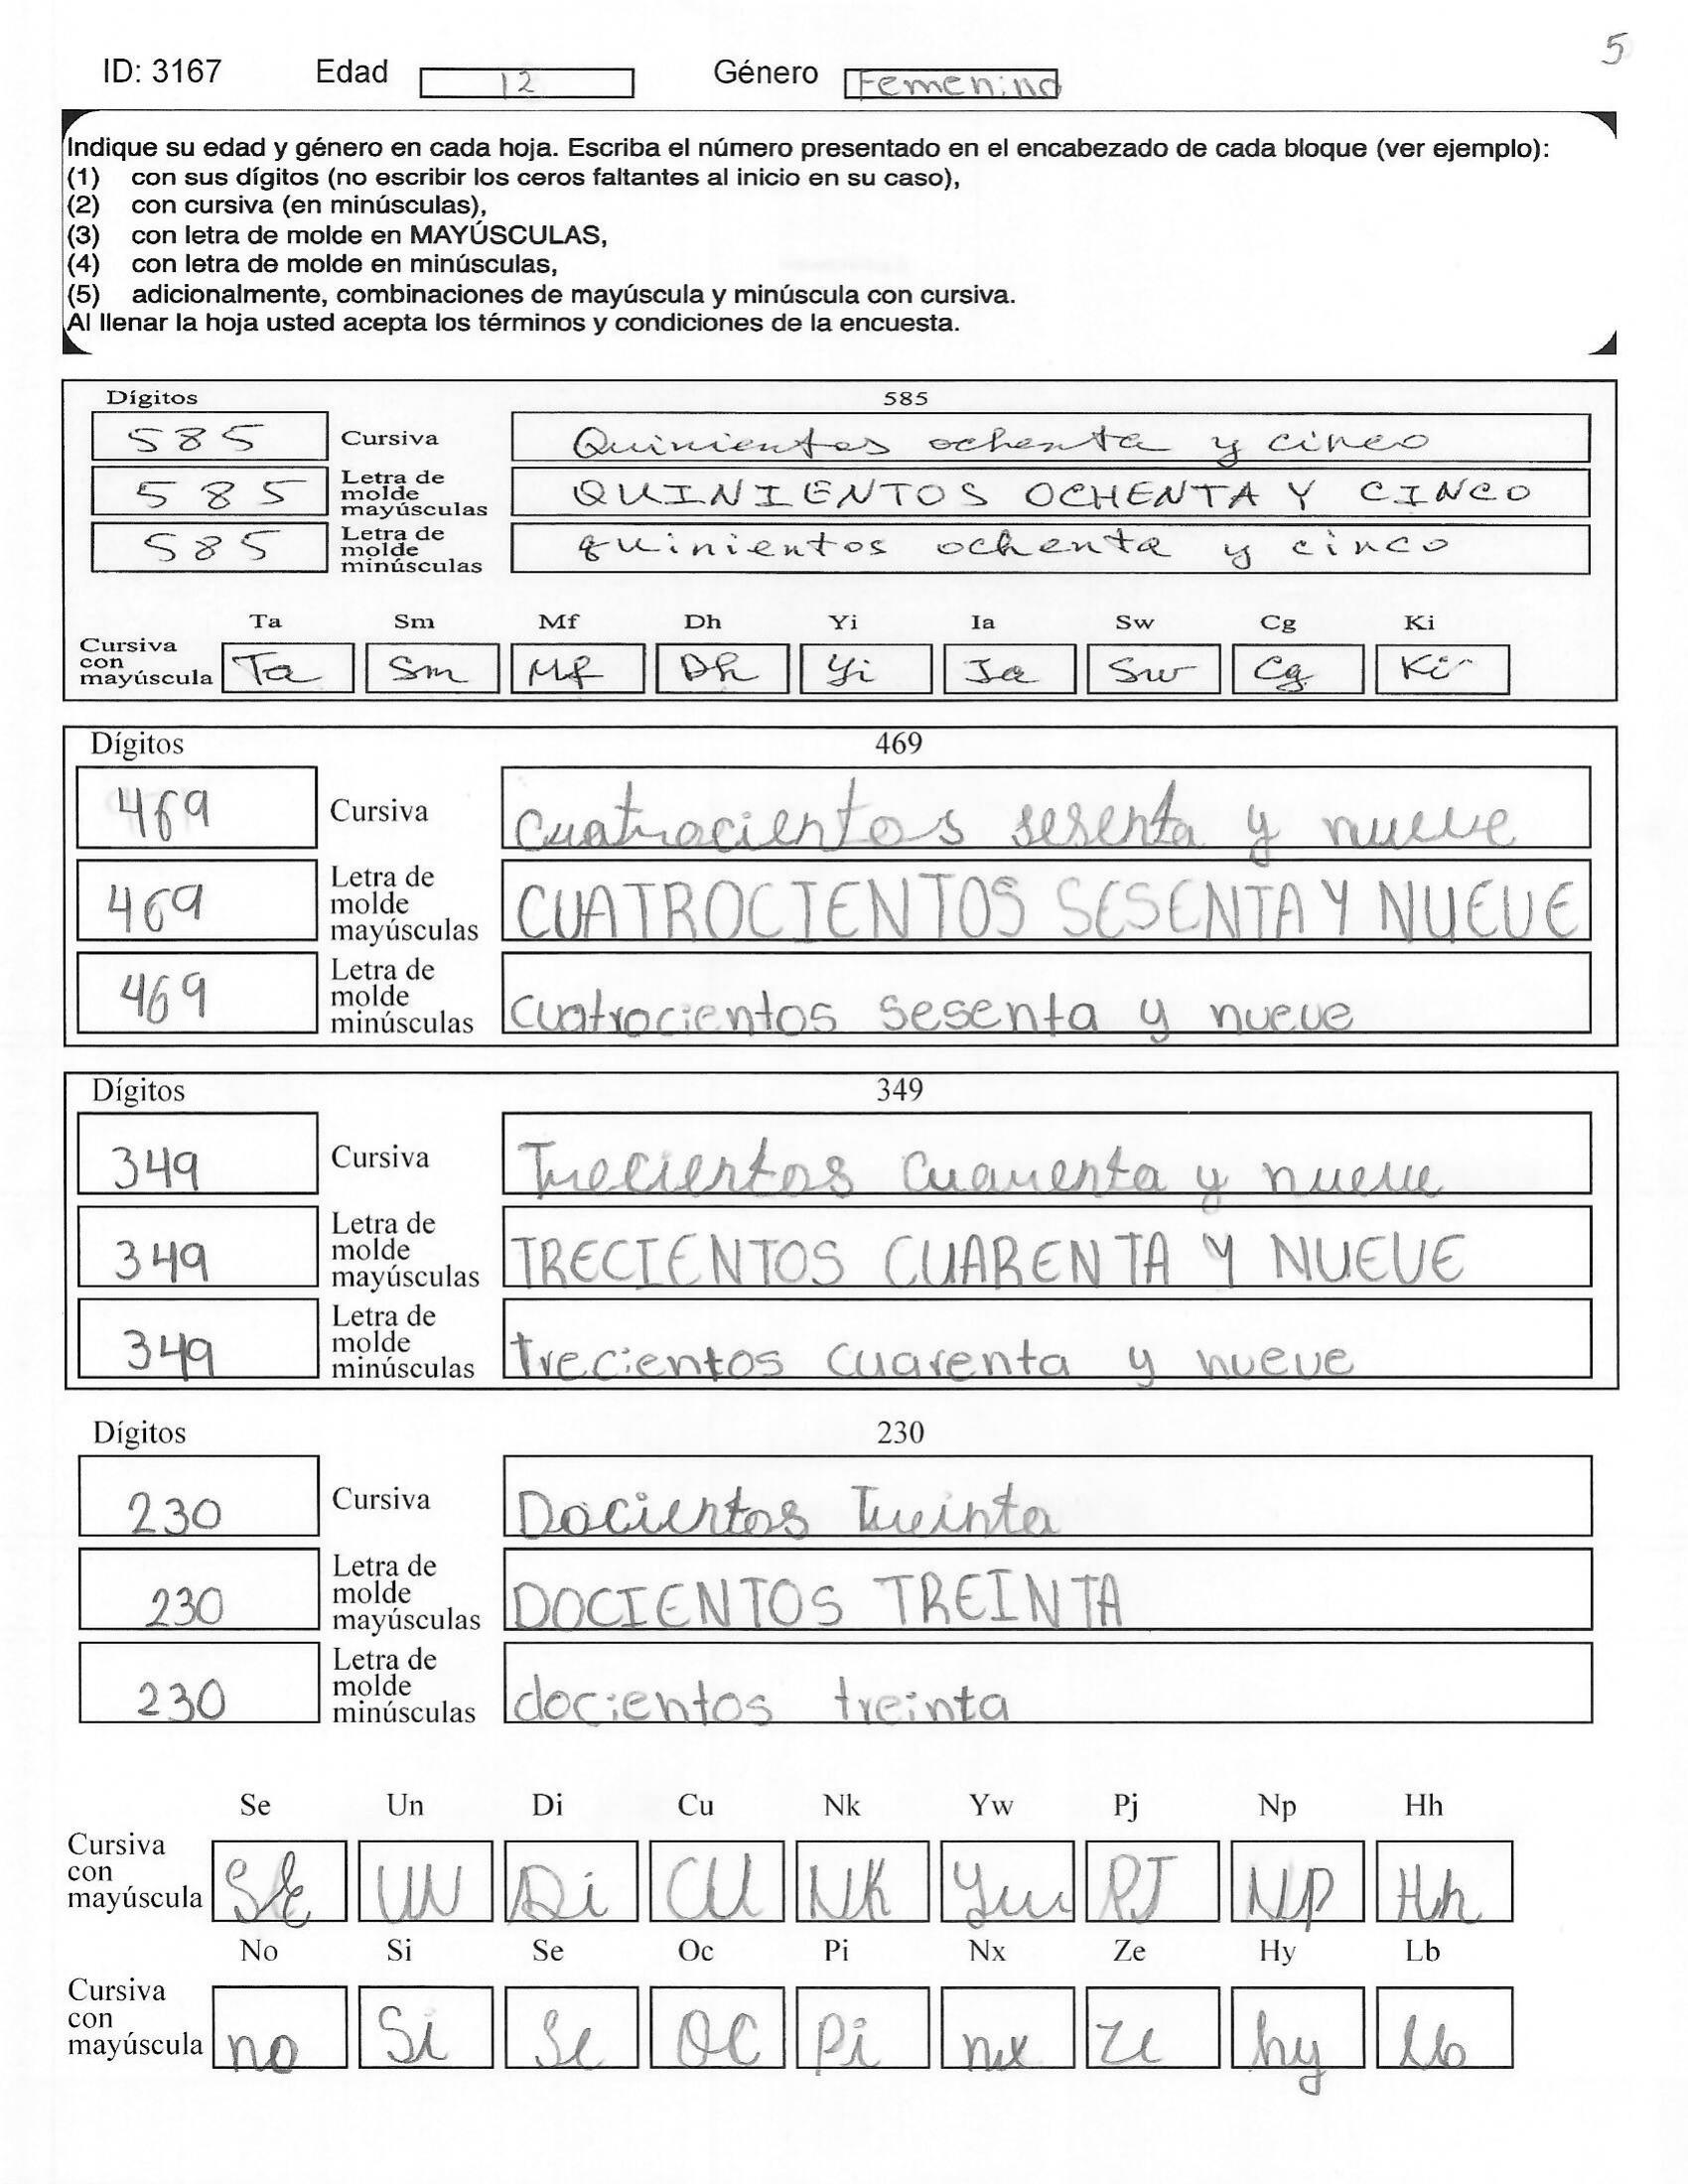 5
ID: 3167 Edad 12 Género Femenino
Indique su edad y género en cada hoja. Escriba el número presentado en el encabezado de cada bloque (ver ejemplo):
(1) con sus dígitos (no escribir los ceros faltantes al inicio en su caso),
(2) con cursiva (en minúsculas),
(3) con letra de molde en MAYÚSCULAS,
(4) con letra de molde en minúsculas,
(5) adicionalmente, combinaciones de mayúscula y minúscula con cursiva.
Al llenar la hoja usted acepta los términos y condiciones de la encuesta.
Dígitos 585
585 Cursiva Quinientos ochenta y cinco
585 Letra de molde mayúsculas QUINIENTOS OCHENTA Y CINCO
585 Letra de molde minúsculas quinientos ochenta y cinco
Ta Sm Mf Dh Yi Ia Sw Cg Ki
Cursiva con mayúscula Ta Sm Mf Dh Yi Ia Sw Cg Ki
Dígitos 469
469 Cursiva cuatrocientos sesenta y nueve
469 Letra de molde mayúsculas CUATROCIENTOS SESENTA Y NUEVE
469 Letra de molde minúsculas cuatrocientos sesenta y nueve
Dígitos 349
349 Cursiva Trecientos cuarenta y nueve
349 Letra de molde mayúsculas TRECIENTOS CUARENTA Y NUEVE
349 Letra de molde minúsculas trecientos cuarenta y nueve
Dígitos 230
230 Cursiva Docientos Treinta
230 Letra de molde mayúsculas DOCIENTOS TREINTA
230 Letra de molde minúsculas docientos treinta
Se Un Di Cu Nk Yw Pj Np Hh
Cursiva con mayúscula Se UN Di CU NK Yw PJ NP Hh
No Si Se Oc Pi Nx Ze Hy Lb
Cursiva con mayúscula no Si Se OC Pi nx Ze hy Lb